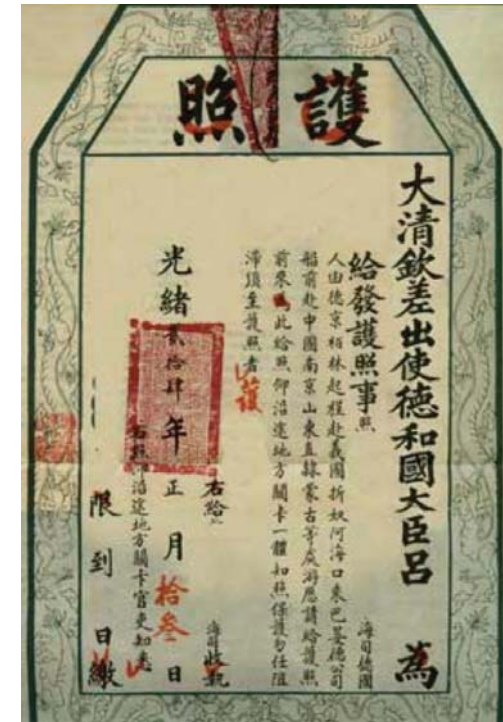 護照
大清欽差出使德和國大臣呂 為
給發護照事照 海司德國
人由德京栢林起程赴義國折奴河海口乘巴晏德公司
船前赴中國南京山東直隸蒙古等處游歷請給護照
前來為此給照仰沿途地方關卡一體知照保護勿任阻
滯須至護照者
護
右給 海司 收執
光緒貳拾肆年正月拾叁日
右照仰沿途地方關卡官吏知悉
限到 日繳